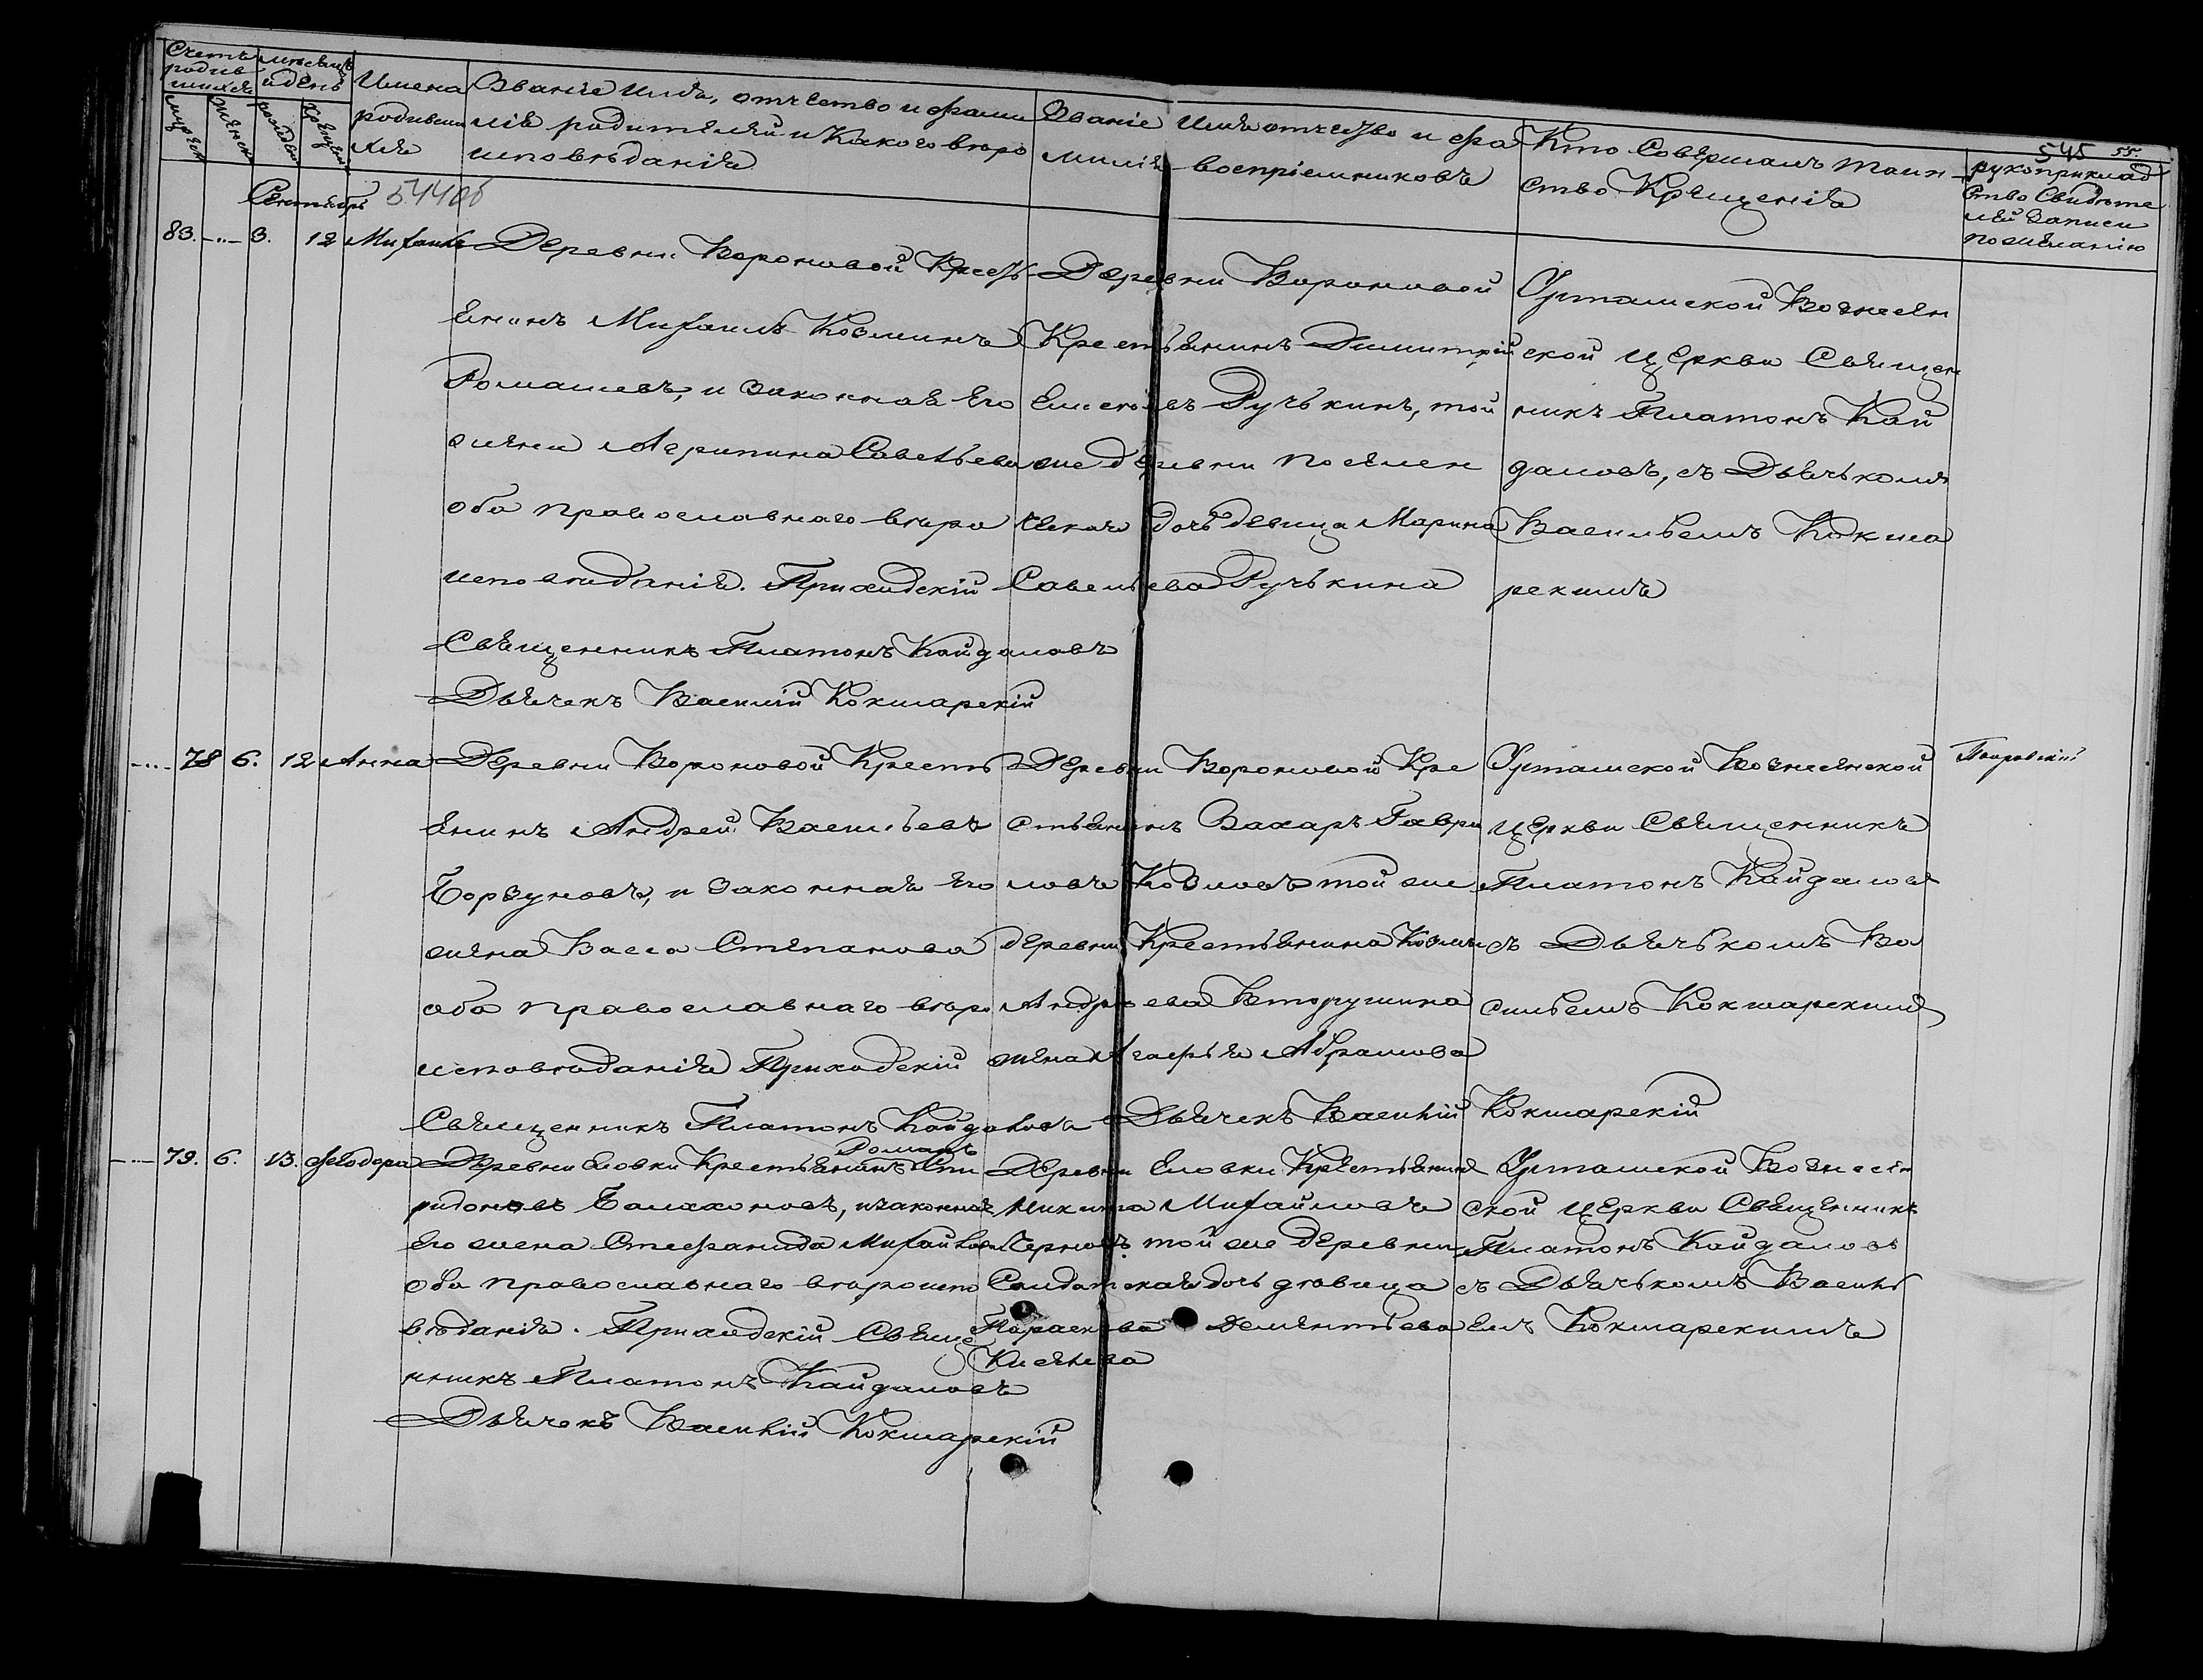 545 55.
Счетъ родив шихся
мѣсяцъ и день
Имена родивши хся
Званіе имя, отчество и фами лія родителей и какого вѣро исповѣданія
Званіе имя отчество и фа милія воспріемниковъ
Кто совершалъ таин ство Крещенія
рукоприклад ство свидѣте лей записи по желанію
мужеск женск рожден крещен
Сентябрь 544об
83. -"- 3. 12 Михаилъ
Деревни Вороновой Кресть
янинъ Михаилъ Козминъ
Ромашевъ, и законная его
жена Агрипина Савельева
оба православнаго вѣро
исповѣданія. Приходскій
Священникъ Платонъ Кайдаловъ
Дьячекъ Василій Кокшарскій
Деревни Вороновой
Крестьянинъ Димитрій
Елисеевъ Ручькинъ, той
же деревни поселен
ческая дочь девица Марина
Савельева Ручькина
Урташской Вознесен
ской церкви Священ
никъ Платонъ Кай
даловъ, съ Дьячькомъ
Васильемъ Кокша
рскимъ
-"- 78 6. 12 Анна
Деревни Вороновой Кресть
янинъ Андрей Васильевъ
Борзуновъ, и законная его
жена Васса Степанова
оба православнаго вѣро
исповѣданія Приходскій
Священникъ Платонъ Кайдаловъ Дьячекъ Василій Кокшарскій
Деревни Вороновой Кре
стьянинъ Захаръ Гаври
ловъ Козловъ той же
деревни Крестьянина Козмы
Андреева Вторушина
жена Агафья Абрамова
Урташской Вознесенской
церкви Священникъ
Платонъ Кайдаловъ
съ Дьячькомъ Ва
сильемъ Кокшарскимъ
-"- 79. 6. 13. Феодора
Романъ
Деревни Еловки Крестьянинъ Спи
ридоновъ Балахоновъ, и законная
его жена Стефанида Михайлова
оба православнаго вѣроиспо
вѣданія. Приходскій Свяще
нникъ Платонъ Кайдаловъ
Дьячекъ Василій Кокшарскій
Деревни Еловки Крестьянинъ
Никита Михайловъ
Черновъ. той же деревни
Солдатская дочь дѣвица
Параскева Дементьева
Киселева
Урташской Вознесен
ской церкви Священникъ
Платонъ Кайдаловъ
съ Дьячькомъ Василь
емъ Кокшарскимъ